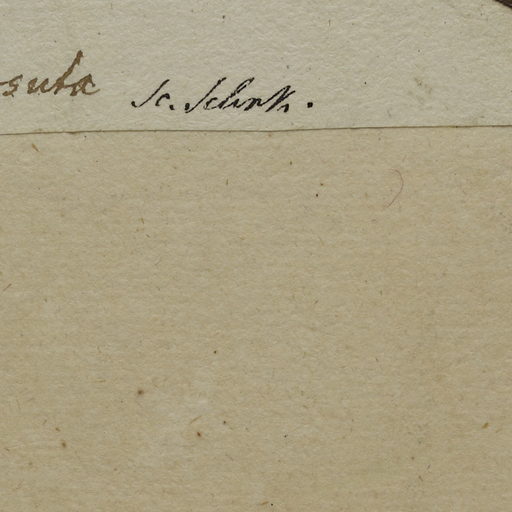 suta Sc. Schrk.